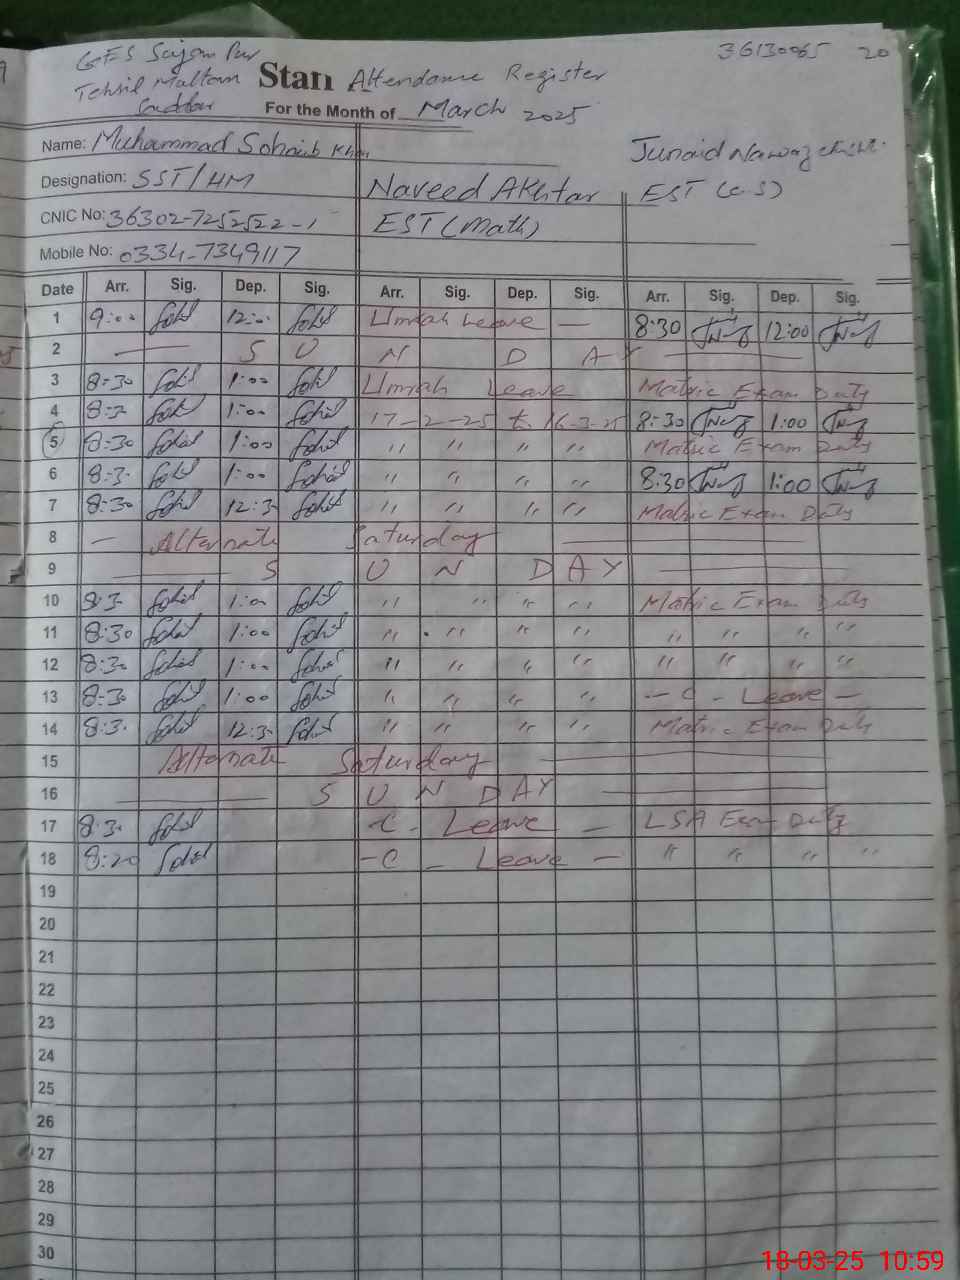 GES Sajan Pur 36130065 20
Tehsil Multan Staff Attendance Register
Saddar For the Month of March 2025
Name: Muhammad Sohaib Khan Junaid Nawaz
Designation: SST/HM Naveed Akhtar EST (C.S)
CNIC No: 36302-7252522-1 EST (Math)
Mobile No: 0334-7349117
Date Arr. Sig. Dep. Sig. Arr. Sig. Dep. Sig. Arr. Sig. Dep. Sig.
1 9:00 Sohib 12:00 Sohib Umrah Leave — 8:30 12:00
2 — S U N D A Y —
3 8:30 Sohib 1:00 Sohib Umrah Leave Matric Exam Duty
4 8:3 Sohib 1:00 Sohib 17-2-25 to 16-3-25 8:30 1:00
5 8:30 Sohib 1:00 Sohib " " " " Matric Exam Duty
6 8:3 Sohib 1:00 Sohib " " " " 8:30 1:00
7 8:30 Sohib 12:3 Sohib " " " " Matric Exam Duty
8 — Alternate Saturday —
9 — S U N D A Y —
10 8:3 Sohib 1:00 Sohib " " " " Matric Exam Duty
11 8:30 Sohib 1:00 Sohib " " " " " " " "
12 8:30 Sohib 1:00 Sohib " " " " " " " "
13 8:30 Sohib 1:00 Sohib " " " " — C - Leave —
14 8:3 Sohib 12:3 Sohib " " " " Matric Exam Duty
15 Alternate Saturday —
16 — S U N D A Y —
17 8:3 Sohib -C - Leave — LSA Exam Duty
18 8:20 Sohib -C - Leave — " " " "
19
20
21
22
23
24
25
26
27
28
29
30
18-03-25 10:59